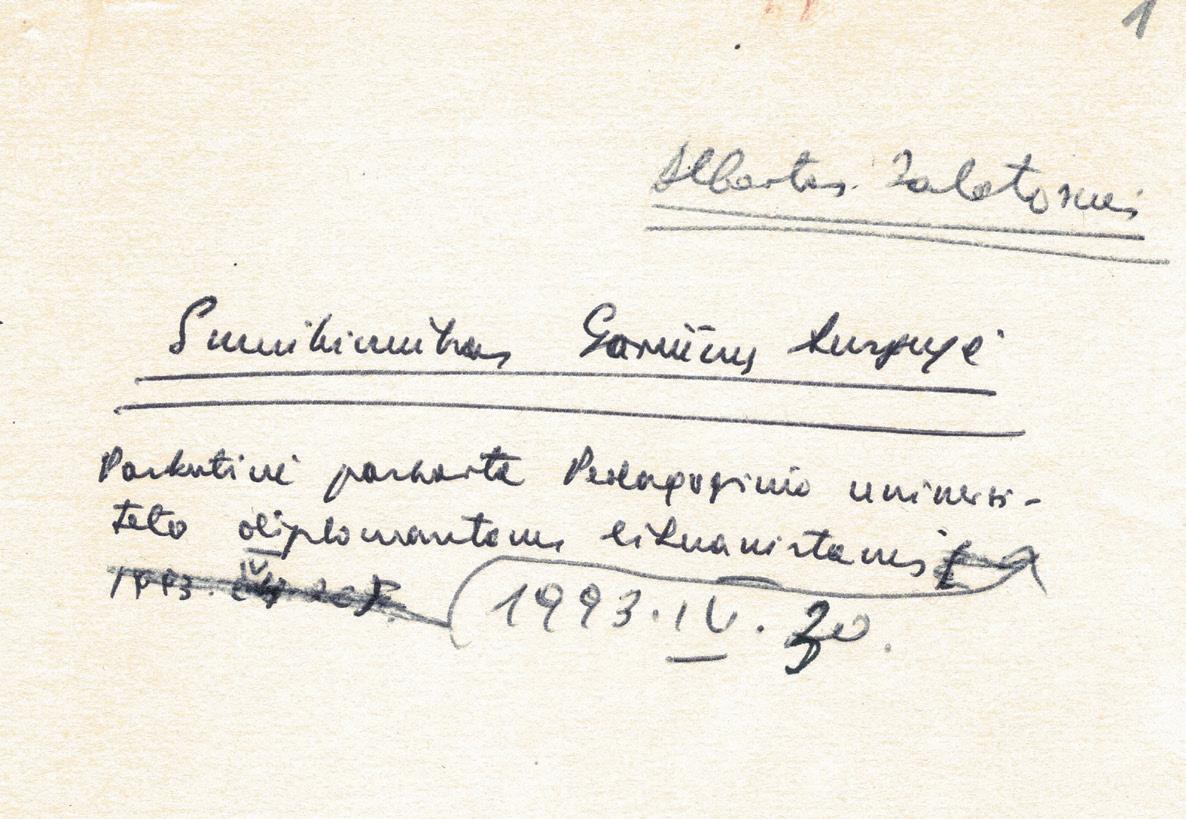 1
Albertas Zalatorius
Smuikininkas Gariūnų turguje
Paskutinė paskaita Pedagoginio universi-
teto diplomantams lituanistams
1993. 1993. IV.